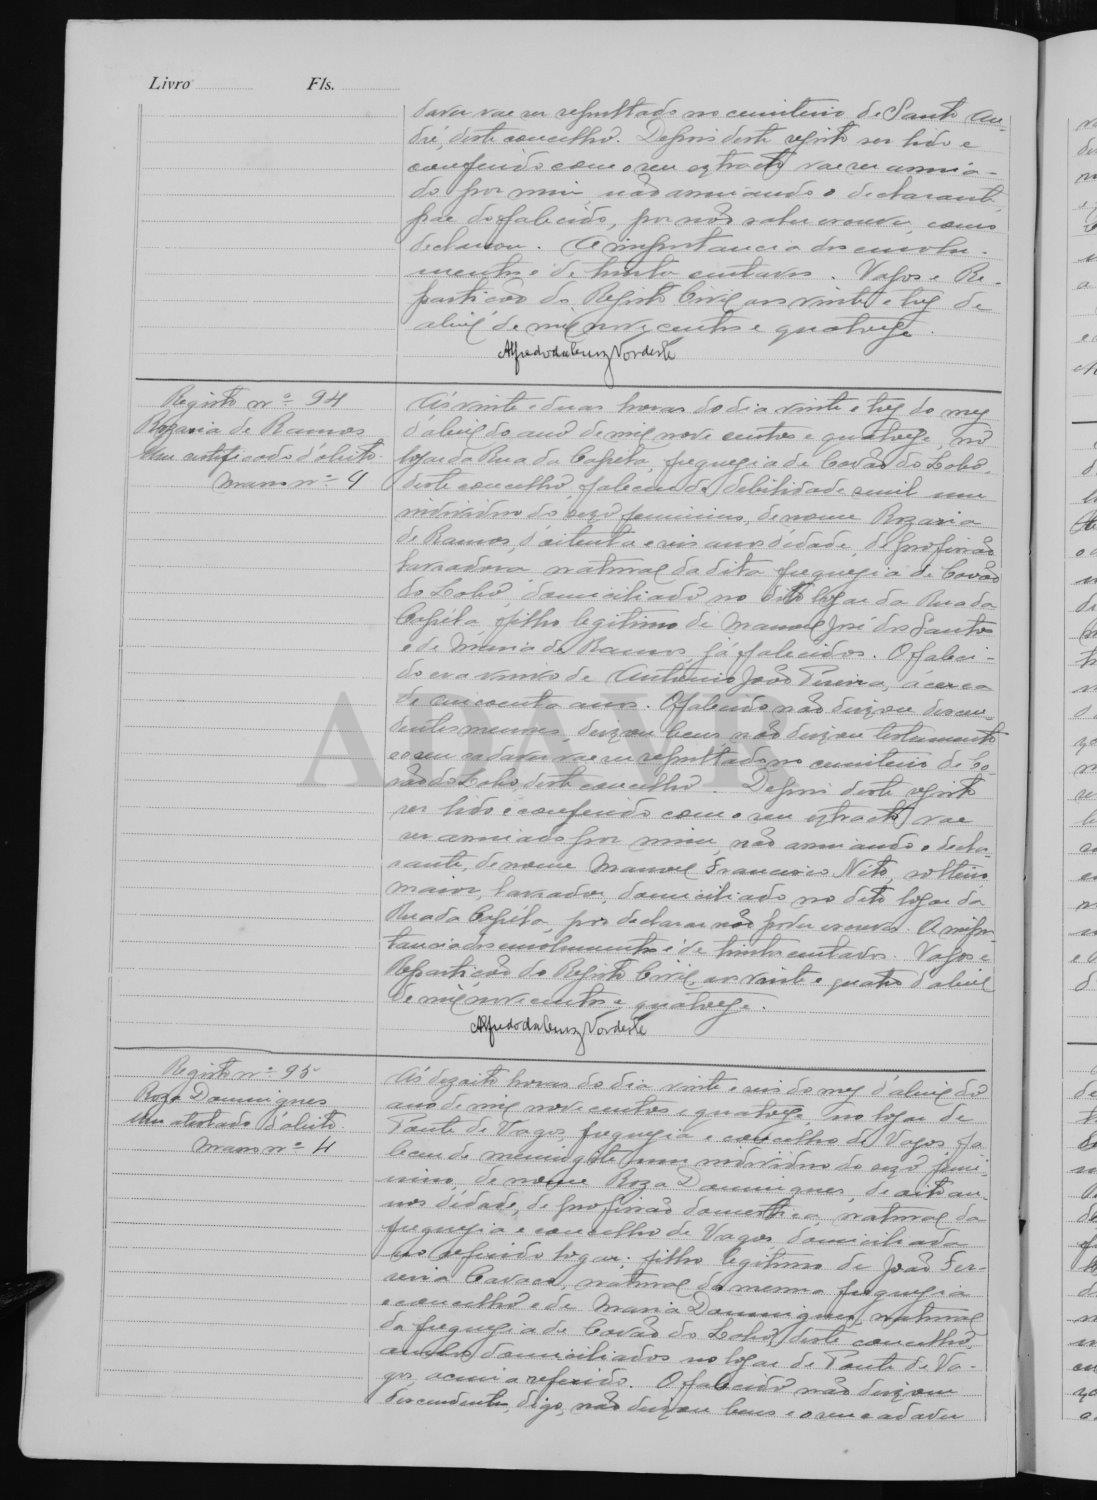 Livro Fls.
daver vae ser sepultado no cemiterio de Santo An-
dré, deste concelho. Depois deste registo ser lido e
conferido com o seu extracto vae ser assina-
do por mim, não assinando o declarante,
pae do falecido, por não saber escrever, como
declarou. A importancia dos emolu-
mentos é de trinta centavos. Vagos e Re-
partição do Registo Civil aos vinte e tres de
abril de mil nove centos e quatorze.
Alfredo da Cruz Nordeste
Registo nº 94
Rozaria de Ramos
Um certificado d'obito
Masso nº 4
Ás vinte e duas horas do dia vinte e tres do mez
d'abril do ano de mil nove centos e quatorze, no
logar da Rua da Capela, freguezia de Covão do Lobo,
deste concelho, faleceu de debilidade senil um
individuo do sexo feminino, de nome Rozaria
de Ramos, d'oitenta e seis anos d'idade, de profissão
lavradora natural da dita freguezia de Covão
do Lobo, domiciliado no dito logar da Rua da
Capéla, filho legitimo de Manoel José dos Santos
e de Maria de Ramos, já falecidos. O faleci-
do era viuvo de Antonio João Pereira, ácerca
de cincoenta anos. O falecido não deixou descen-
dentes menores, deixou bens, não deixou testamento
e o seu cadaver vae ser sepultado no cemiterio de Co-
vão do Lobo, deste concelho. Depois deste registo
ser lido e conferido com o seu extracto vae
ser assinado por mim, não assinando o decla-
rante, de nome Manoel Francisco Nito, solteiro
maior, lavrador, domiciliado no dito logar da
Rua da Capéla, por declarar não poder escrever. A impor-
tancia dos emolumentos é de trinta centavos. Vagos e
Repartição do Registo Civil, aos vinte e quatro d'abril
de mil nove centos e quatorze.
Alfredo da Cruz Nordeste
Registo nº 95
Roza Domingues
Um atestado d'obito
Masso nº 4
Ás dezoito horas do dia vinte e seis do mez d'abril do
ano de mil nove centos e quatorze, no logar de
Ponte de Vagos, freguezia e concelho de Vagos, fa
leceu de meningite um individuo do sexo femi-
nino, de nome Roza Domingues, de oito an-
nos d'idade, de profissão domestica, natural da
freguezia e concelho de Vagos, domiciliada
no referido logar, filho legitimo de João Fer-
reira Cavaco, natural da mesma freguezia
e concelho e de Maria Domingues, natural
da freguezia de Covão do Lobo, deste concelho,
ambos domiciliados no logar de Ponte de Va-
gos, acima referido. O falecido não deixou
descendentes, digo, não deixou bens e o seu cadaver
APAVR